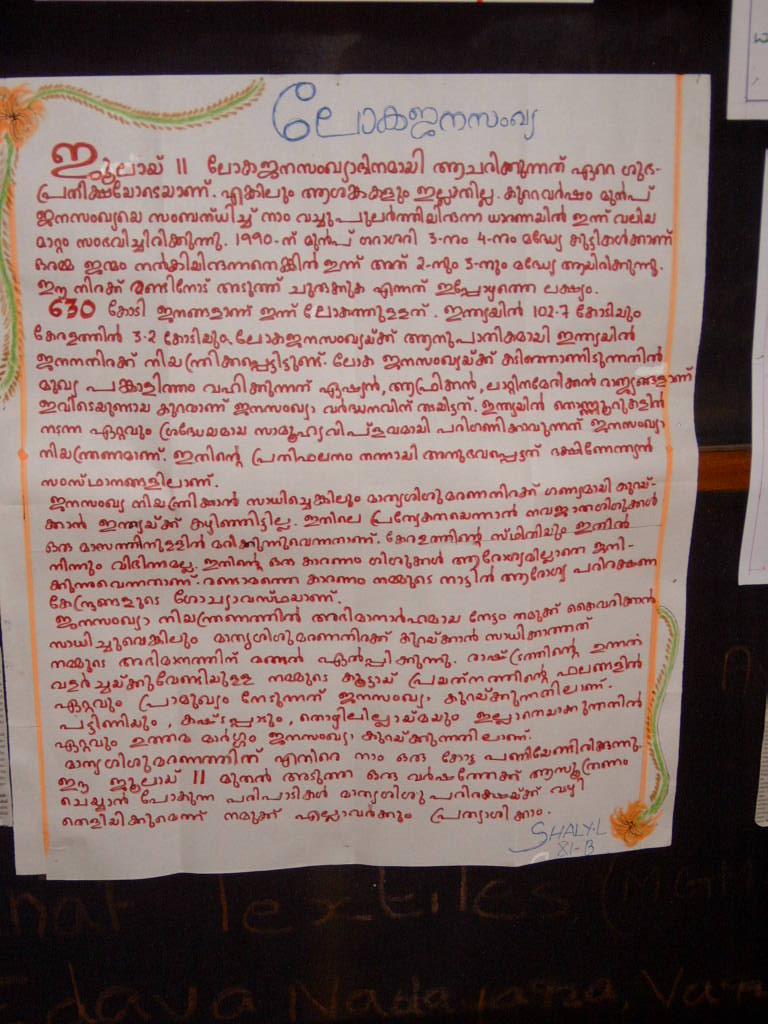 ലോകജനസംഖ്യ
ജൂലായ് 11 ലോകജനസംഖ്യാദിനമായി ആചരിക്കുന്നത് ഏറെ ശുഭ-
പ്രതീക്ഷയോടെയാണ്. എങ്കിലും ആശങ്കകളും ഇല്ലാതില്ല. കുറെവർഷം മുൻപ്
ജനസംഖ്യയെ സംബന്ധിച്ച് നാം വച്ചുപുലർത്തിയിരുന്ന ധാരണയിൽ ഇന്ന് വലിയ
മാറ്റം സംഭവിച്ചിരിക്കുന്നു. 1990-ന് മുൻപ് ശരാശരി 3-നും 4-നും മദ്ധ്യേ കുട്ടികൾക്കാണ്
ഒരമ്മ ജന്മം നൽകിയിരുന്നതെങ്കിൽ ഇന്ന് അത് 2-നും 3-നും മദ്ധ്യേ ആയിരിക്കുന്നു.
ഈ നിരക്ക് രണ്ടിനോട് അടുത്ത് ചുരുക്കുക എന്നത് ഇപ്പോഴത്തെ ലക്ഷ്യം.
630 കോടി ജനങ്ങളാണ് ഇന്ന് ലോകത്തുള്ളത്. ഇന്ത്യയിൽ 102.7 കോടിയും
കേരളത്തിൽ 3.2 കോടിയും. ലോകജനസംഖ്യയ്ക്ക് ആനുപാതികമായി ഇന്ത്യയിൽ
ജനനനിരക്ക് നിയന്ത്രിക്കപ്പെട്ടിട്ടുണ്ട്. ലോക ജനസംഖ്യയ്ക്ക് കടിഞ്ഞാണിടുന്നതിൽ
മുഖ്യ പങ്കാളിത്തം വഹിക്കുന്നത് ഏഷ്യൻ, ആഫ്രിക്കൻ, ലാറ്റിനമേരിക്കൻ രാജ്യങ്ങളാണ്
ഇവിടെയുണ്ടായ കുറവാണ് ജനസംഖ്യാ വർദ്ധനവിന് തടയിട്ടത്. ഇന്ത്യയിൽ തൊണ്ണൂറുകളിൽ
നടന്ന ഏറ്റവും ശ്രദ്ധേയമായ സാമൂഹ്യവിപ്ലവമായി പരിഗണിക്കാവുന്നത് ജനസംഖ്യാ
നിയന്ത്രണമാണ്. ഇതിന്റെ പ്രതിഫലനം നന്നായി അനുഭവപ്പെട്ടത് ദക്ഷിണേന്ത്യൻ
സംസ്ഥാനങ്ങളിലാണ്.
ജനസംഖ്യ നിയന്ത്രിക്കാൻ സാധിച്ചെങ്കിലും മാതൃശിശുമരണനിരക്ക് ഗണ്യമായി കുറയ്-
ക്കാൻ ഇന്ത്യയ്ക്ക് കഴിഞ്ഞിട്ടില്ല. ഇതിലെ പ്രത്യേകതയെന്നാൽ നവജാതശിശുക്കൾ
ഒരു മാസത്തിനുള്ളിൽ മരിക്കുന്നുവെന്നതാണ്. കേരളത്തിന്റെ സ്ഥിതിയും ഇതിൽ
നിന്നും വിഭിന്നമല്ല. ഇതിന്റെ ഒരു കാരണം ശിശുക്കൾ ആരോഗ്യമില്ലാതെ ജനി-
ക്കുന്നുവെന്നതാണ്. രണ്ടാമത്തെ കാരണം നമ്മുടെ നാട്ടിൽ ആരോഗ്യ പരിരക്ഷണ
കേന്ദ്രങ്ങളുടെ ശോച്യാവസ്ഥയാണ്.
ജനസംഖ്യാ നിയന്ത്രണത്തിൽ അഭിമാനാർഹമായ നേട്ടം നമുക്ക് കൈവരിക്കാൻ
സാധിച്ചുവെങ്കിലും മാതൃശിശുമരണനിരക്ക് കുറയ്ക്കാൻ സാധിക്കാത്തത്
നമ്മുടെ അഭിമാനത്തിന് മങ്ങൽ ഏൽപ്പിക്കുന്നു. രാഷ്ട്രത്തിന്റെ ഉന്നത
വളർച്ചയ്ക്കുവേണ്ടിയുള്ള നമ്മുടെ കൂട്ടായ പ്രയത്നത്തിന്റെ ഫലങ്ങളിൽ
ഏറ്റവും പ്രാമുഖ്യം നേടുന്നത് ജനസംഖ്യ കുറയ്ക്കുന്നതിലാണ്.
പട്ടിണിയും, കഷ്ടപ്പാടും, തൊഴിലില്ലായ്മയും ഇല്ലാതെയാക്കുന്നതിൽ
ഏറ്റവും ഉത്തമ മാർഗ്ഗം ജനസംഖ്യാ കുറയ്ക്കുന്നതിലാണ്.
മാതൃശിശുമരണത്തിന് എതിരെ നാം ഒരു കോട്ട പണിയേണ്ടിരിക്കുന്നു.
ഈ ജൂലായ് 11 മുതൽ അടുത്ത ഒരു വർഷത്തേക്ക് ആസൂത്രണം
ചെയ്യാൻ പോകുന്ന പരിപാടികൾ മാതൃശിശു പരിരക്ഷയ്ക്ക് വഴി
തെളിയിക്കുമെന്ന് നമുക്ക് എല്ലാവർക്കും പ്രത്യാശിക്കാം.
SHALY.L
81-B
Textiles (MGM
Edava Nada